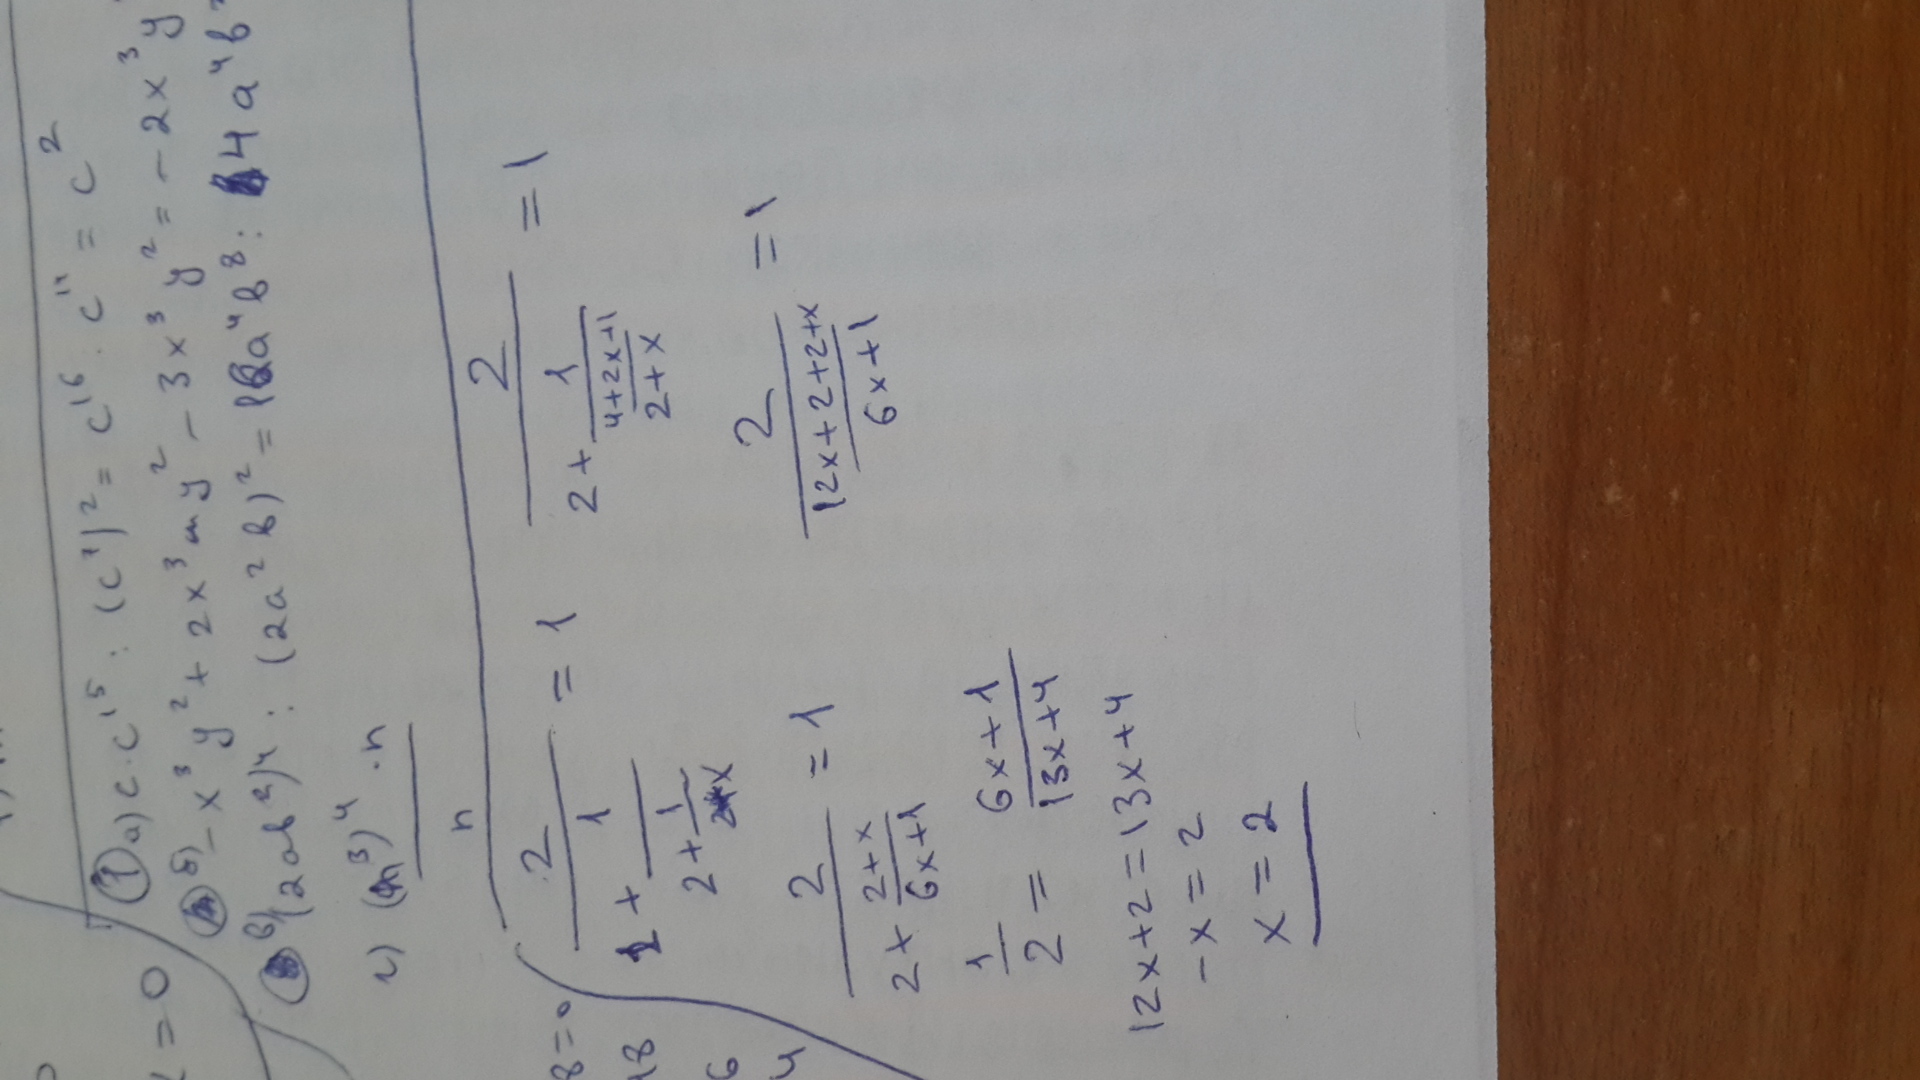 x = 0
① a) c · c¹⁵ : (c⁷)² = c¹⁶ : c¹⁴ = c²
б) - x³y² + 2x³y² - 3x³y² = - 2x³y
в) (2ab²)⁴ : (2a²b)² = 16a⁴b⁸ : 4a⁴b²
г) (n³)⁴ · n
n
8 = 0
18
6
4
2/(1 + 1/(2 + 1/x)) = 1
2/(2 + 1/((4+2x+1)/(2+x))) = 1
2/(2 + (2+x)/(6x+1)) = 1
2/((12x+2+2+x)/(6x+1)) = 1
1/2 = (6x+1)/(13x+4)
12x+2 = 13x+4
-x = 2
x = 2